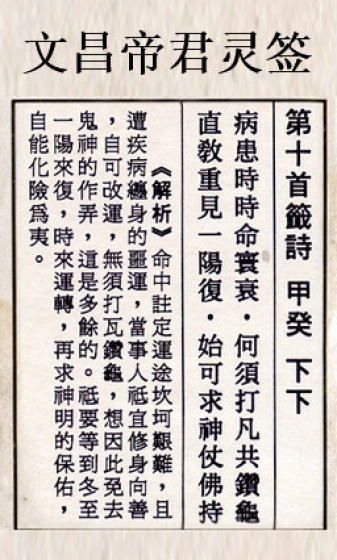 文昌帝君灵签
第十首籤詩 甲癸 下下
病患時時命寰衰·何須打凡共鑽龜
直教重見一陽復·始可求神仗佛持
《解析》命中註定運途坎坷艱難，且
遭疾病纏身的噩運，當事人祗宜修身向善
，自可改運，無須打瓦鑽龜，想因此免去
鬼神的作弄，這是多餘的。祗要等到冬至
一陽來復，時來運轉，再求神明的保佑，
自能化險爲夷。